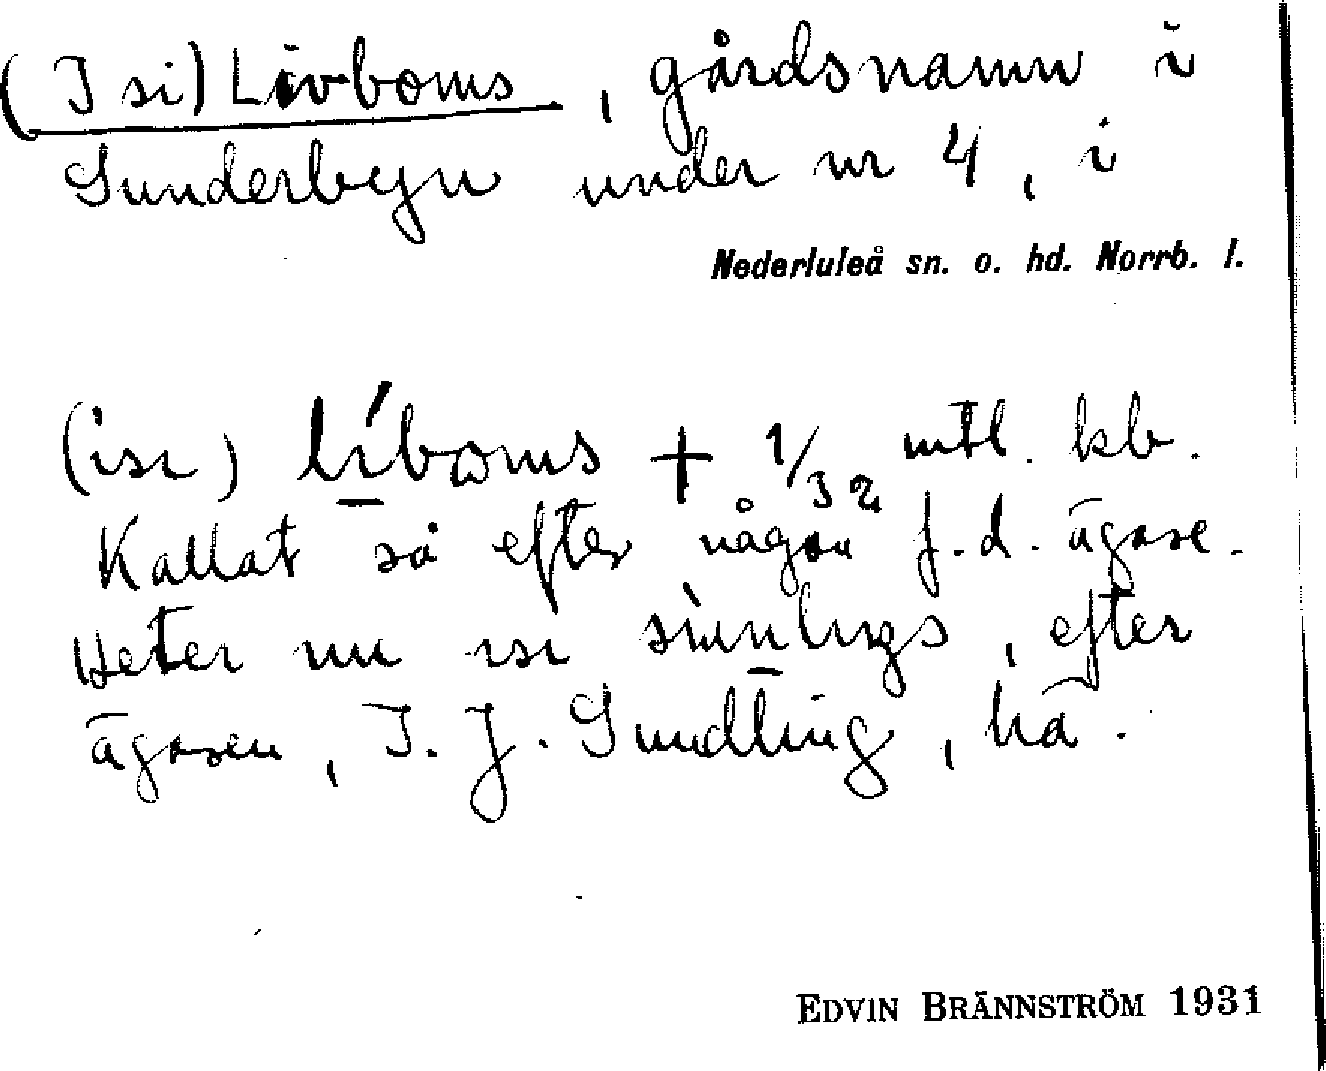 (I si) Livboms, gårdsnamn i
Sunderbyn under nr 4, i
Nederluleå sn. o. hd. Norrb. l.
(isi) líboms + 1/32 mtl. kb.
Kallat så efter någon f.d. ägare.
Heter nu isi sùnlıŋgs, efter
ägaren, I. J. Sundling, hä.
EDVIN BRÄNNSTRÖM 1931